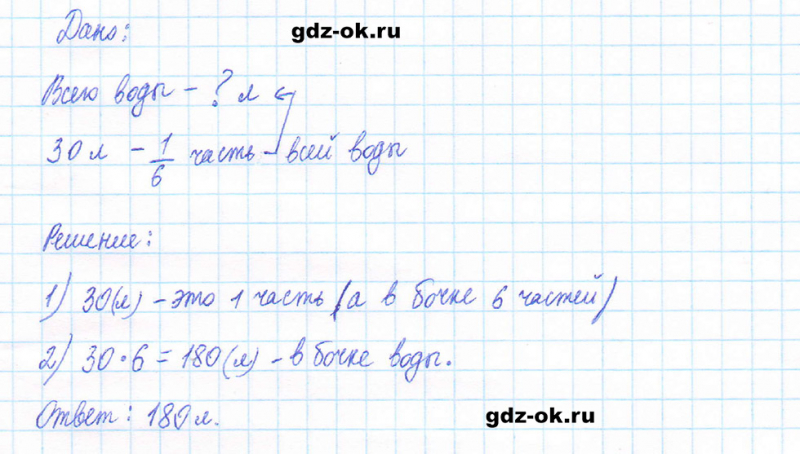 Дано:
gdz-ok.ru
Всего воды - ? л
30 л - 1/6 часть - всей воды
Решение:
1) 30(л) - это 1 часть (а в бочке 6 частей)
2) 30·6 = 180(л) - в бочке воды.
Ответ: 180 л.
gdz-ok.ru